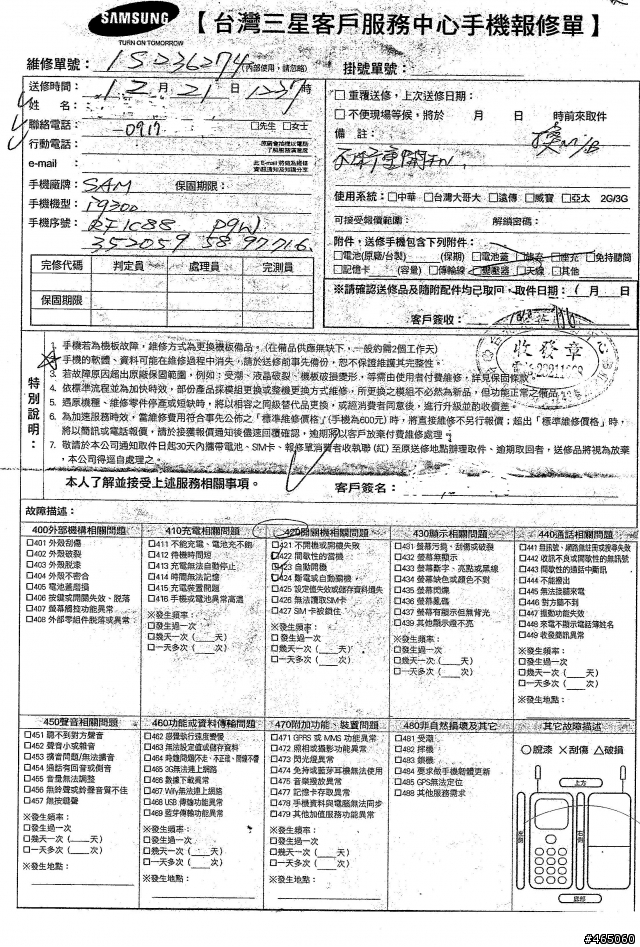 SAMSUNG
TURN ON TOMORROW
【台灣三星客戶服務中心手機報修單】
維修單號： (內部使用，請忽略)
掛號單號：
送修時間： 12 月 21 日 時
姓 名：
聯絡電話： 0917 □先生 □女士
行動電話：
e-mail：
手機廠牌： SAM 保固期限：
手機機型： i9300
手機序號：
完修代碼 判定員 處理員 完測員
保固期限
□重覆送修，上次送修日期：
□不便現場等候，將於 月 日 時前來取件
備 註： 換M/B
使用系統：□中華 □台灣大哥大 □遠傳 □威寶 □亞太 2G/3G
可接受報價範圍： 解鎖密碼：
附件，送修手機包含下列附件：
□電池(原廠/台製) (保期) □電池蓋 □旅充 □座充 □免持聽筒
□記憶卡 (容量) □傳輸線 □變壓器 □天線 □其他
※請確認送修品及隨附配件均已取回，取件日期：( 月 日
客戶簽收：
收發章
特別說明：
1. 手機若為機板故障，維修方式為更換機板備品。(在備品供應無缺下，一般約需2個工作天)
2. 手機的軟體、資料可能在維修過程中消失，請於送修前事先備份，恕不保證維護其完整性。
3. 若故障原因超出原廠保固範圍，例如：受潮、液晶破裂、機板破損變形，等需由使用者付費維修，詳見保固條款。
4. 依標準流程並為加快時效，部份產品採模組更換或整機更換方式維修，所更換之模組不必然為新品，但功能正常之備品。
5. 遇原機種、維修零件停產或短缺時，將以相容之同級替代品更換，或經消費者同意後，進行升級並酌收價差。
6. 為加速服務時效，當維修費用符合事先公佈之「標準維修價格」(手機為600元)時，將直接維修不另行報價；超出「標準維修價格」時，
將以簡訊或電話報價，請於接獲報價通知後儘速回覆確認，逾期將以客戶放棄付費維修處理。
7. 敬請於本公司通知取件日起30天內攜帶電池、SIM卡、報修單消費者收執聯(紅)至原送修地點辦理取件、逾期取回者，送修品將視為放棄
，本公司得逕自處理之。
本人了解並接受上述服務相關事項。 客戶簽名：
故障描述：
400外部機構相關問題
□401 外殼刮傷
□402 外殼破裂
□403 外殼脫漆
□404 外殼不密合
□405 電池蓋磨損
□406 按鍵或開關失效、脫落
□407 螢幕觸控功能異常
□408 外部零組件脫落或異常
410充電相關問題
□411 不能充電、電池充不飽
□412 待機時間短
□413 充電無法自動停止
□414 時間無法記憶
□415 充電裝置問題
□416 手機或電池異常高溫
※發生頻率：
□發生過一次
□幾天一次(＿＿天)
□一天多次(＿＿次)
420開關機相關問題
□421 不開機或開機失敗
□422 間歇性的當機
□423 自動開機
□424 斷電或自動關機
□425 設定值失效或儲存資料遺失
□426 無法讀取SIM卡
□427 SIM 卡被鎖住
※發生頻率：
□發生過一次
□幾天一次(＿＿天)
□一天多次(＿＿次)
430顯示相關問題
□431 螢幕污損、刮傷或破裂
□432 螢幕無顯示
□433 螢幕斷字、亮點或黑線
□434 螢幕缺色或顏色不對
□435 螢幕閃爍
□436 螢幕亂碼
□437 螢幕有顯示但無背光
□439 其他顯示燈不亮
※發生頻率：
□發生過一次
□幾天一次(＿＿天)
□一天多次(＿＿次)
440通話相關問題
□441 無訊號、網路無註冊或搜尋失敗
□442 收訊不良或間歇性的無訊號
□443 間歇性的通話中斷訊
□444 不能撥出
□445 無法接聽來電
□446 對方聽不到
□447 振動功能失效
□448 來電不顯示電話簿姓名
□449 收發簡訊異常
※發生頻率：
□發生過一次
□幾天一次(＿＿天)
□一天多次(＿＿次)
※發生地點：
450聲音相關問題
□451 聽不到對方聲音
□452 聲音小或雜音
□453 擴音問題/無法擴音
□454 通話有回音或側音
□455 音量無法調整
□456 無鈴聲或鈴聲音質不佳
□457 無按鍵聲
※發生頻率：
□發生過一次
□幾天一次(＿＿天)
□一天多次(＿＿次)
※發生地點：
460功能或資料傳輸問題
□462 感覺執行速度變慢
□463 無法設定值或儲存資料
□464 時鐘問題(不走、不正確、鬧鐘不響
□465 3G無法連上網路
□466 數據下載異常
□467 Wifi無法連上網絡
□468 USB 傳輸功能異常
□469 藍芽傳輸功能異常
※發生頻率：
□發生過一次
□幾天一次(＿＿天)
□一天多次(＿＿次)
※發生地點：
470附加功能、裝置問題
□471 GPRS 或 MMS 功能異常
□472 照相或攝影功能異常
□473 閃光燈異常
□474 免持或藍芽耳機無法使用
□475 音樂撥放異常
□477 記憶卡存取異常
□478 手機資料與電腦無法同步
□479 其他加值服務功能異常
※發生頻率：
□發生過一次
□幾天一次(＿＿天)
□一天多次(＿＿次)
※發生地點：
480非自然損壞及其它
□481 受潮
□482 摔機
□483 鎖機
□484 要求做手機韌體更新
□485 GPS無法定位
□488 其他服務需求
其它故障描述
○脫漆 ×刮傷 △破損
上方
左側
右側
底部
#465060